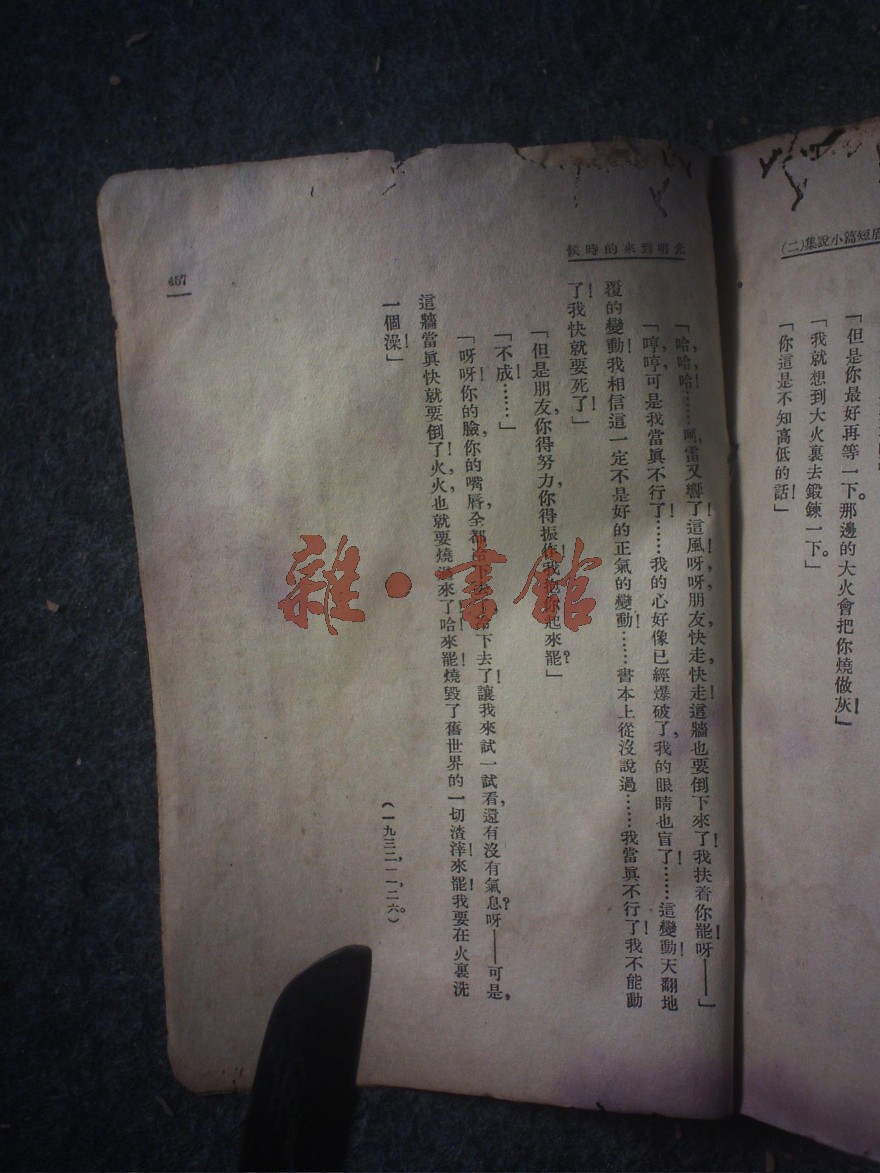 短篇小說集(二)
「但是你最好再等一下。那邊的大火會把你燒做灰!」
「我就想到大火裏去鍛鍊一下。」
「你這是不知高低的話!」
光明到來的時候
「哈,哈,哈!……呵,雷又響了!這風!呀,呀,朋友,快走,快走!這牆也要倒下來了!我扶着你罷!呀——」
「哼,哼,可是我當眞不行了!……我的心好像已經爆破了,我的眼睛也盲了!……這變動!天翻地
覆的變動!我相信這一定不是好的正氣的變動!……書本上從沒說過……我當眞不行了!我不能動
了!我快就要死了!」
「但是朋友,你得努力,你得振作!我抱你起來罷?」
「不成……」
「呀!呀!你的臉,你的嘴唇,全都冷下去了!冷下去了!讓我來試一試看,還有沒有氣息?呀——可是,
這牆當眞快就要倒了!火,火也就要燒過來了!哈!來罷!燒毀了舊世界的一切渣滓!來罷!我要在火裏洗
一個澡!」
(一九三二,一一,二六。)
457
雜·書館